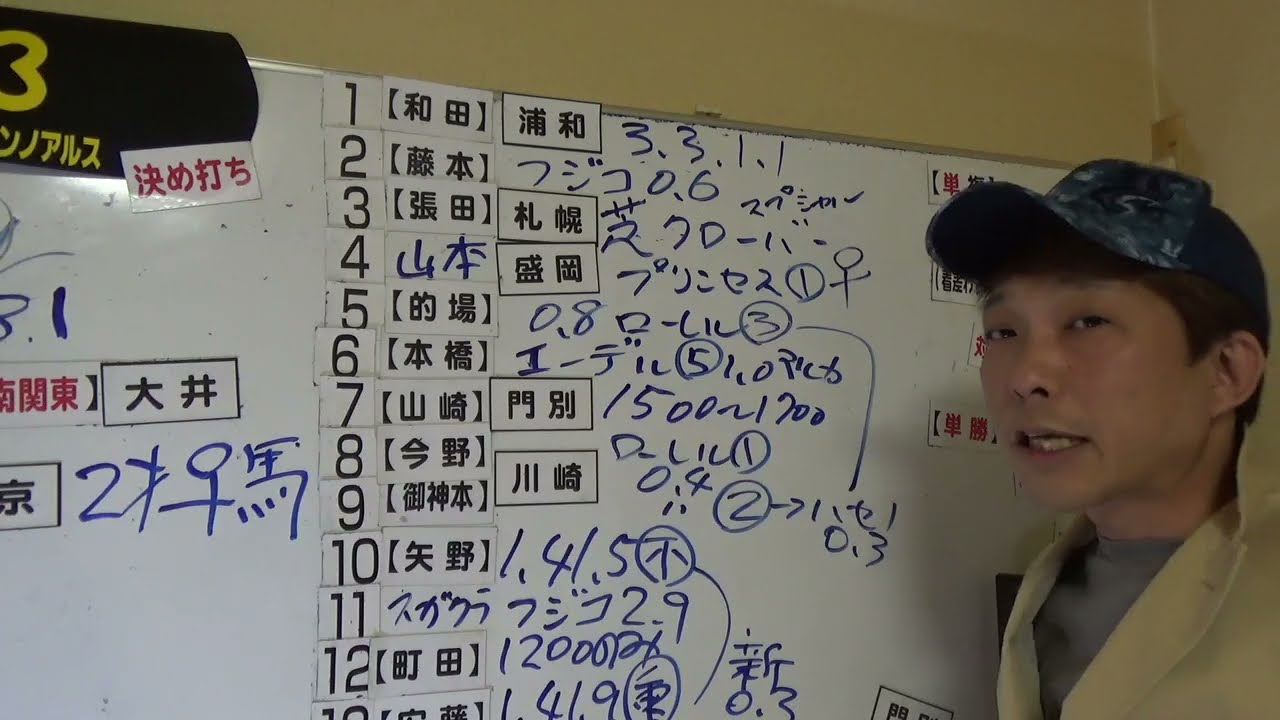 3
ンノアルス
決め打ち
3.1
南関東】 大井
京 2才牝馬
1 【和田】 浦和 3.3.1.1
2 【藤本】 フジコ0.6
スペシャル
3 【張田】 札幌 芝クローバー
4 山本 盛岡 プリンセス①♀
5 【的場】 0.8 ローレル③
6 【本橋】 エーデル⑤1.0アルカ
7 【山崎】 門別 1500〜1700
8 【今野】 ローレル①
0.4
9 【御神本】 川崎 〃 ②→ハセノ
0.3
10 【矢野】 1.41.5 不
11 スガクラ フジコ2.9
12 【町田】 1200のみ
新
0.3
13 【安藤】 1.41.9 重
【単
【単勝】
門別